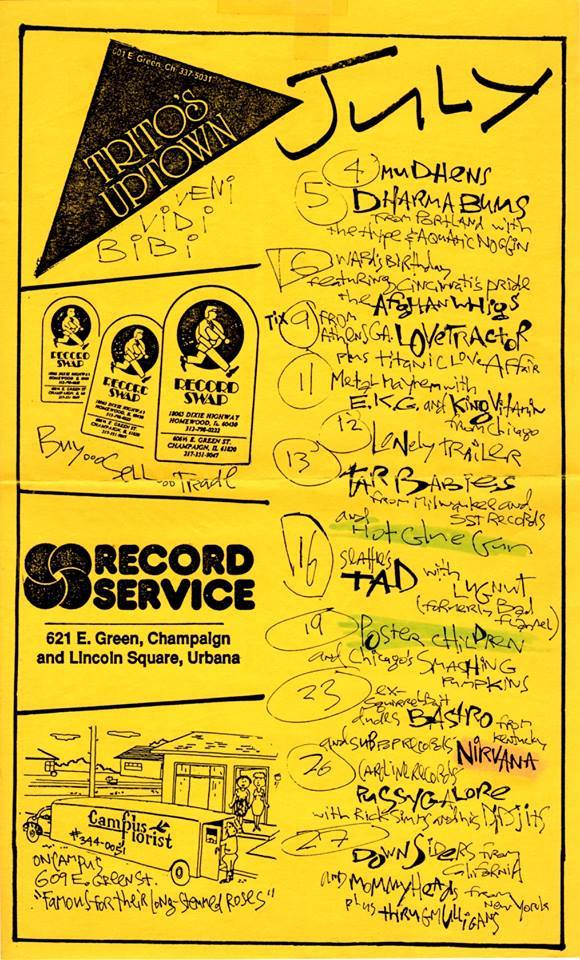 601 E. Green, Ch. 337-5031
TRITO'S
UPTOWN
VENI
VIDI
BIBI
RECORD
SWAP
RECORD
SWAP
RECORD
SWAP
18063 DIXIE HIGHWAY
HOMEWOOD, IL 60430
312-798-0222
606½ E. GREEN ST.
CHAMPAIGN, IL 61820
217-351-9047
Buy...Sell...Trade!
RECORD
SERVICE
621 E. Green, Champaign
and Lincoln Square, Urbana
Campus
Florist
#344-0051
ON CAMPUS
609 E. GREEN ST.
"Famous for their long-stemmed Roses"
July
4 MUDHENS
5 DHARMA BUMS
from PORTLAND with
the Hype & AQUATIC NOGGIN
6 WARD'S Birthday
featuring Cincinnati's pride
the Afghan Whigs
Tix 9 FROM
Athens GA. LOVE TRACTOR
plus Titanic Love Affair
11 Metal Mayhem with
E.K.G. and King Vitamin
from Chicago
12 LONELY TRAILER
13 TAR BABIES
from Milwaukee and
SST RECORDS
and Hot Glue Gun
16 SEAttle's
TAD with LUGNUT
(formerly Bad
Flannel)
19 POSTER CHILDREN
and Chicago's SMASHING
PUMPKINS
23 ex-
Squirrel Bait
dudes BASTRO from
Kentucky
and SUB POP RECORDS' NIRVANA
26 CAROLINE RECORDS'
PUSSY GALORE
with Rick Sims and his DIDjits
27 DOWNSIDERS from
California
and MOMMYHEADS from
New York
plus THIRU GMULLIGANS